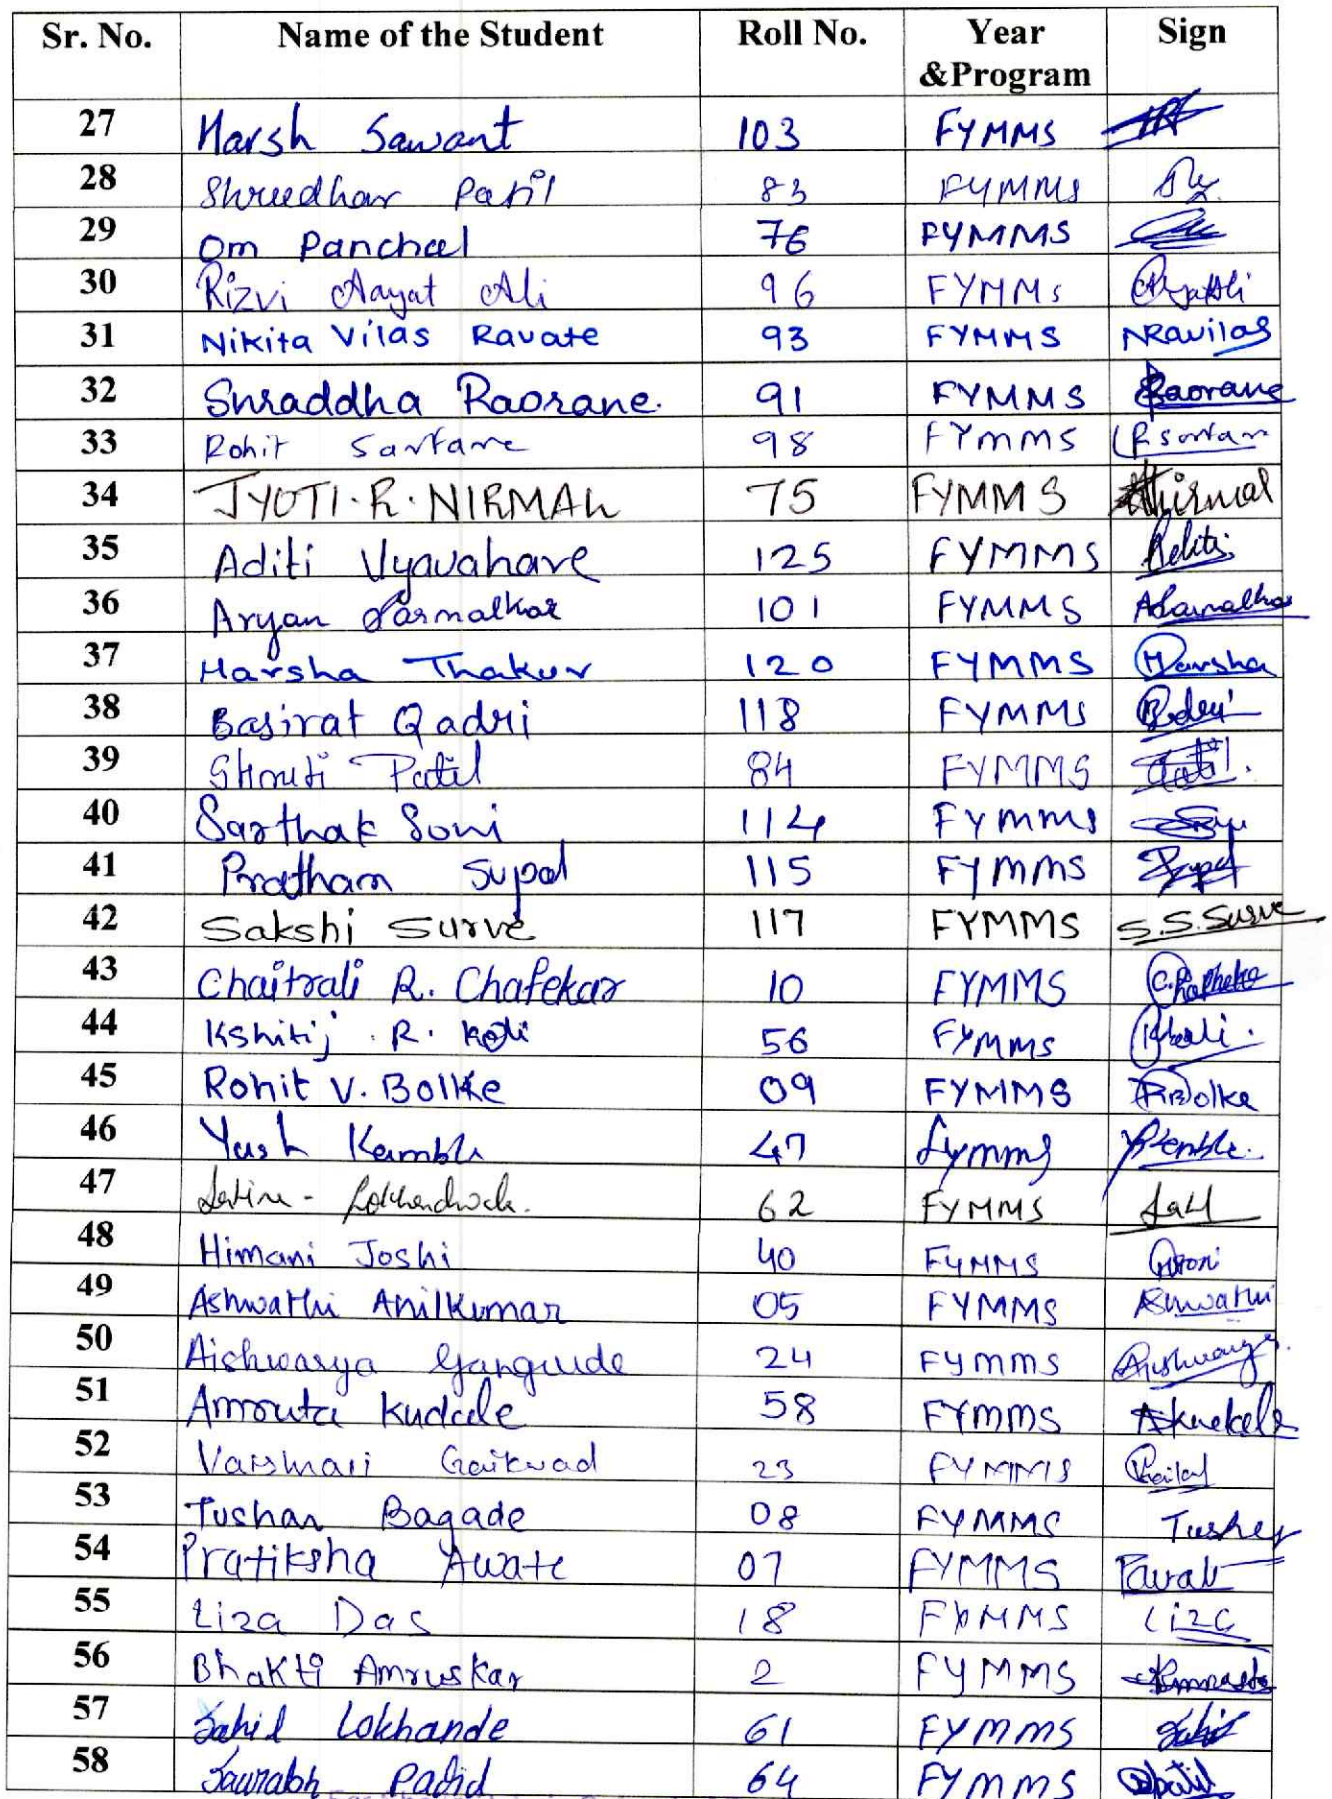 Sr. No. Name of the Student Roll No. Year &Program Sign
27 Harsh Sawant 103 FYMMS
28 Shreedhar Patil 83 FYMMS
29 Om Panchal 76 FYMMS
30 Rizvi Aayat Ali 96 FYMMS
31 Nikita Vilas Ravate 93 FYMMS NRavilas
32 Shraddha Raorane. 91 FYMMS Raorane
33 Rohit Sartane 98 FYMMS
34 JYOTI.R.NIRMAL 75 FYMMS
35 Aditi Vyavahare 125 FYMMS
36 Aryan Parmalkar 101 FYMMS
37 Harsha Thakur 120 FYMMS Harsha
38 Basirat Qadri 118 FYMMS
39 Shruti Patil 84 FYMMS
40 Sarthak Soni 114 FYMMS
41 Pratham Supal 115 FYMMS
42 Sakshi Surve 117 FYMMS S.S.Surve
43 Chaitrali R. Chafekar 10 FYMMS
44 Kshitij R. Koli 56 FYMMS
45 Rohit V. Bolke 09 FYMMS RBolke
46 Yash Kamble 47 fymms
47 62 FYMMS
48 Himani Joshi 40 FYMMS
49 Ashwathi Anilkumar 05 FYMMS Ashwathi
50 Aishwarya Gangurde 24 FYMMS
51 Amruta Kudale 58 FYMMS
52 Vaishnavi Gaikwad 23 FYMMS
53 Tushar Bagade 08 FYMMS
54 Pratiksha Awate 07 FYMMS
55 Liza Das 18 FYMMS Liza
56 Bhakti Amruskar 2 FYMMS
57 Sahil Lokhande 61 FYMMS
58 Saurabh 64 FYMMS